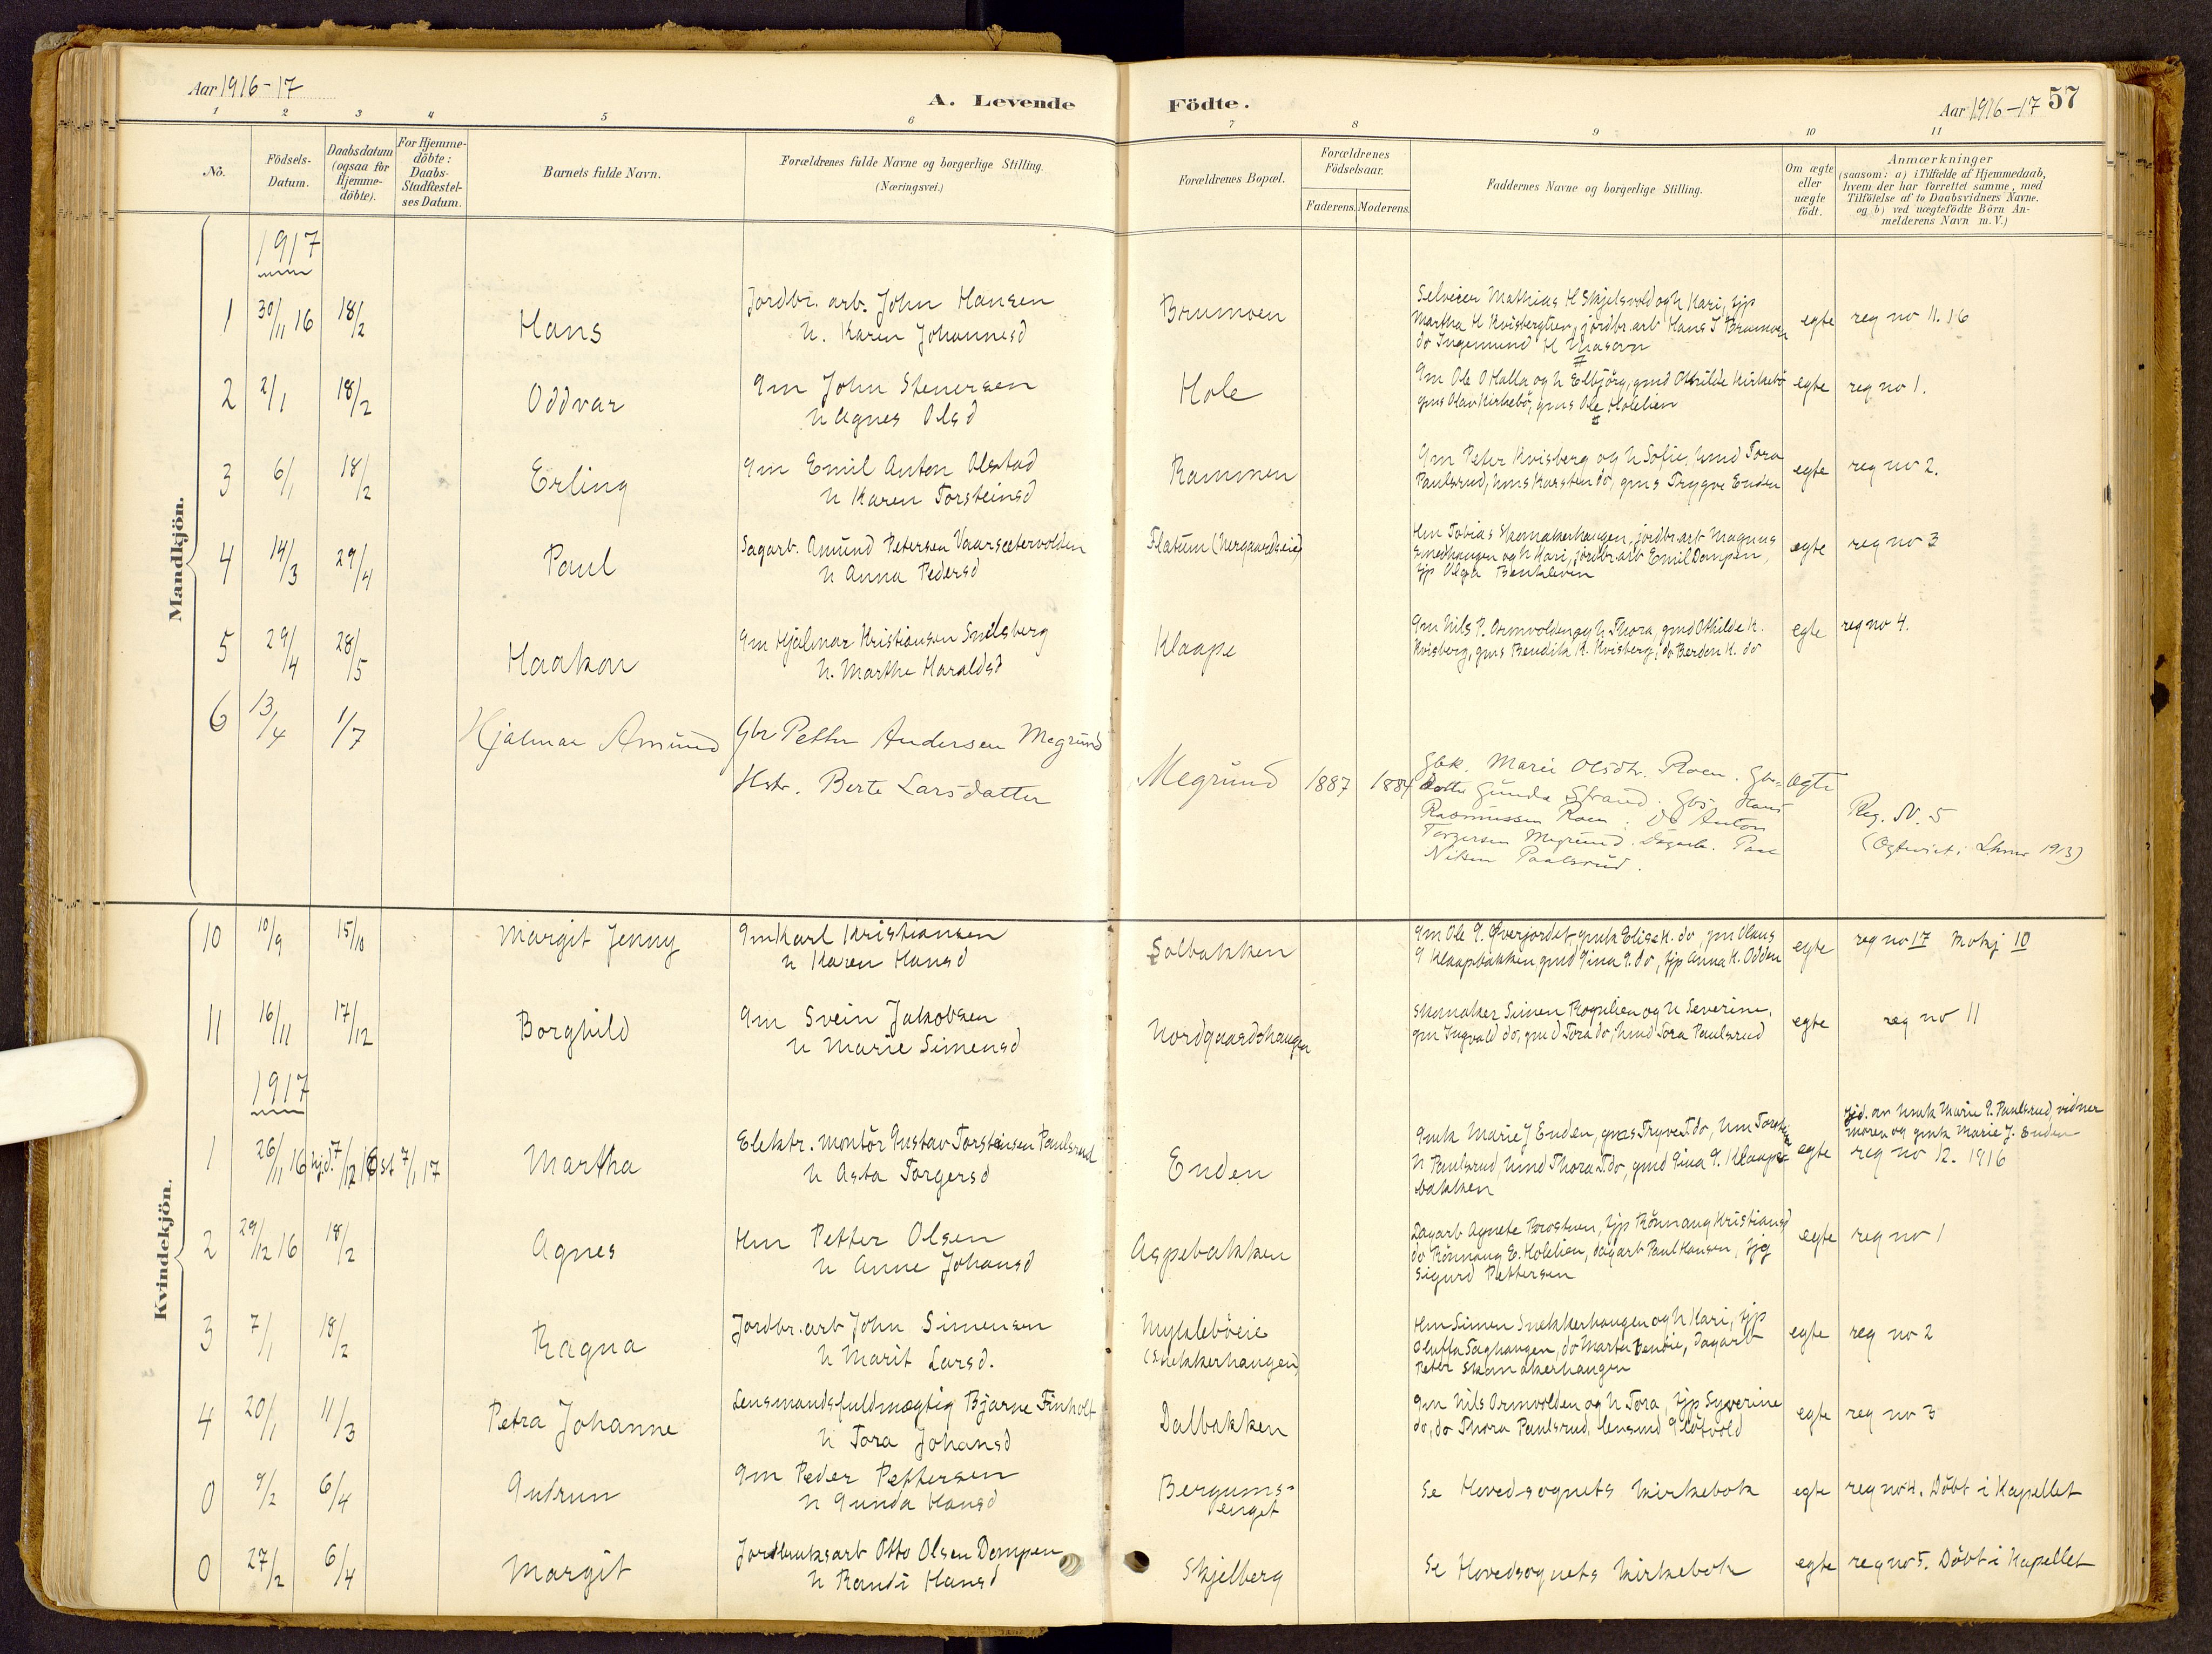 Aar 1916-17
A. Levende
Födte.
Aar 1916-17 57
1 2 3 4 5 6 7 8 9 10 11
No.
Födsels-
Datum.
Daabsdatum
(ogsaa for
Hjemme-
döbte).
For Hjemme-
döbte:
Daabs-
Stadfæstel-
ses Datum.
Barnets fulde Navn.
Forældrenes fulde Navne og borgerlige Stilling.
(Næringsvei.)
Forældrenes Bopæl.
Forældrenes
Födselsaar.
Faderens. Moderens.
Faddernes Navne og borgerlige Stilling.
Om ægte
eller
uægte
födt.
Anmærkninger
(saasom: a) i Tilfælde af Hjemmedaab,
hvem der har forrettet samme, med
Tilföielse af to Daabsvidners Navne.
og b) ved uægtefödte Börn An-
melderens Navn m. V.)
Mandkjön.
1917
1 30/11 16 18/2 Hans
Jordbr. arb. John Hansen
h. Karen Johannesd
Brumoen
Selveier Mathias H Skjelsvold og h Kari, tjp
Martha H Kvisbergtrøen, jordbr. arb Hans J Brumoen
do Ingemund H
egte
reg no 11. 16
2 2/1 18/2 Oddvar
Gm John Stenersen
h Agnes Olsd
Hole
Gm Ole O Halla og h Elbjörg, gmd Othilde Kirkebö
gms Olav Kirkebö, gms Ole Holelien
egte
reg no 1.
3 6/1 18/2 Erling
Gm Emil Anton Olstad
h Karen Torsteinsd
Rammen
Gm Peter Kvisberg og h Sofie, hmd Tora
Paulsrud, hms Karsten do, gms Trygve Enden
egte
reg no 2.
4 14/3 29/4 Paul
Sagarb. Amund Petersen Vaarsætervolden
h Anna Pedersd
Flatum (Nergaardseie)
Hm Tobias Skomakerhaugen, jordbr arb Magnus
Smedhaugen og h Kari, jordbr arb Emil Dompen,
tjp Olga
egte
reg no 3
5 29/4 28/5 Haakon
Gm Hjalmar Kristiansen Snilsberg
h. Marthe Haraldsd
Klaape
Gm Nils P. Ormvolden og h Thora, gmd Othilde K.
Kvisberg, gms Bendik K. Kvisberg, do Berdon K. do
egte
reg no 4.
6 13/4 1/7 Hjalmar Amund
Gbr Petter Andersen Megrund
Hstr. Berte Larsdatter
Megrund 1887 1884
Gbk. Marie Olsdtr. Roen. Gbr-
datter Gunda Strand. Gbs. Hans
Rasmussen Roen. Do Anton
Torgersen Megrund. Dagarb. Paul
Nilsen Paulsrud.
Ægte
Reg. N. 5
(Ægteviet i Lhmr 1913)
Kvindekjön.
10 10/9 15/10 Margit Jenny
Gm Karl Kristiansen
h Karen Hansd
Solbakken
Gm Ole P. Øverjordet, gmk Elise K. do, gm Olaus
P Klaapbakken, gmd Gina P. do, tjp Anna K. Odden
egte
reg no 17 Mokj 10
11 16/11 17/12 Borghild
Gm Svein Jakobsen
h Marie Simensd
Nordgaardshaugen
Skomaker Simen Rognlien og h Severine,
gm Ingvald do, gmd Tora do, hmd Tora Paulsrud
egte
reg no 11
1917
1 26/11 16 hjd. 7/12 16 st 7/1 17 Martha
Elektr. montör Gustav Torsteinsen Paulsrud
h Asta Torgersd
Enden
Gmk Marie J Enden, gms Trygve T do, hm Torstein
N Paulsrud, hmd Thora T do, gmd Gina P. Klaape-
bakken
egte
hjd. av hmk Marie P. Paulsrud, vidner
moren og gmk Marie J. Enden
reg no 12. 1916
2 29/12 16 18/2 Agnes
Hm Petter Olsen
h Anne Johansd
Aspebakken
Dagarb Agnete Brostuen, tjp Rönnaug Kristiansd
do Rönnaug E. Holelien, dagarb Paul Hansen, tjg
Sigurd Pettersen
egte
reg no 1
3 7/1 18/2 Ragna
Jordbr. arb John Simensen
h Marit Larsd.
Mykleböeie
(Snekkerhaugen)
Hm Simen Snekkerhaugen og h Kari, tjp
Oluffa Saghaugen, do Marta, Dagarb
Peter Skomakerhaugen
egte
reg no 2
4 20/1 11/3 Petra Johanne
Lensmandsfuldmægtig Bjarne Finholt
h Tora Johansd
Dalbakken
Gm Nils Ormvolden og h Tora, tjp Syverine
do, do Thora Paulsrud, lensmd Pløtvold
egte
reg no 3
0 9/2 6/4 Gudrun
Gm Peder Pettersen
h Gunda Hansd
Bergums-
enget
Se Hovedsognets Kirkebok
egte
reg no 4. Döbt i Kapellet
0 27/2 6/4 Margit
Jordbruksarb Otto Olsen Dompen
h Randi Hansd
Skjelberg
Se Hovedsognets Kirkebok
egte
reg no 5. Döbt i Kapellet